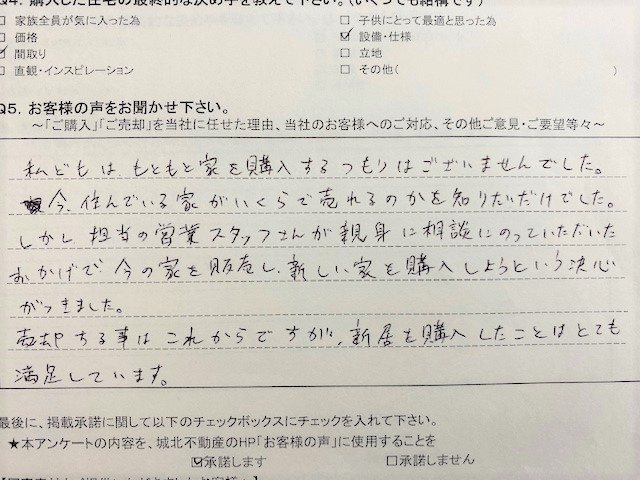 Q4. 購入した住宅の最終的な決め手を教えて下さい。(いくつでも結構です)
□ 家族全員が気に入った為 □ 子供にとって最適と思った為
□ 価格 ☑ 設備・仕様
☑ 間取り □ 立地
□ 直観・インスピレーション □ その他( )
Q5. お客様の声をお聞かせ下さい。
～「ご購入」「ご売却」を当社に任せた理由、当社のお客様へのご対応、その他ご意見・ご要望等々～
私どもは、もともと家を購入するつもりはございませんでした。
今、住んでいる家がいくらで売れるのかを知りたいだけでした。
しかし担当の営業スタッフさんが親身に相談にのっていただいた
おかげで今の家を販売し、新しい家を購入しようという決心
がつきました。
売却する事はこれからですが、新居を購入したことはとても
満足しています。
最後に、掲載承諾に関して以下のチェックボックスにチェックを入れて下さい。
★本アンケートの内容を、城北不動産のHP「お客様の声」に使用することを
☑承諾します □承諾しません